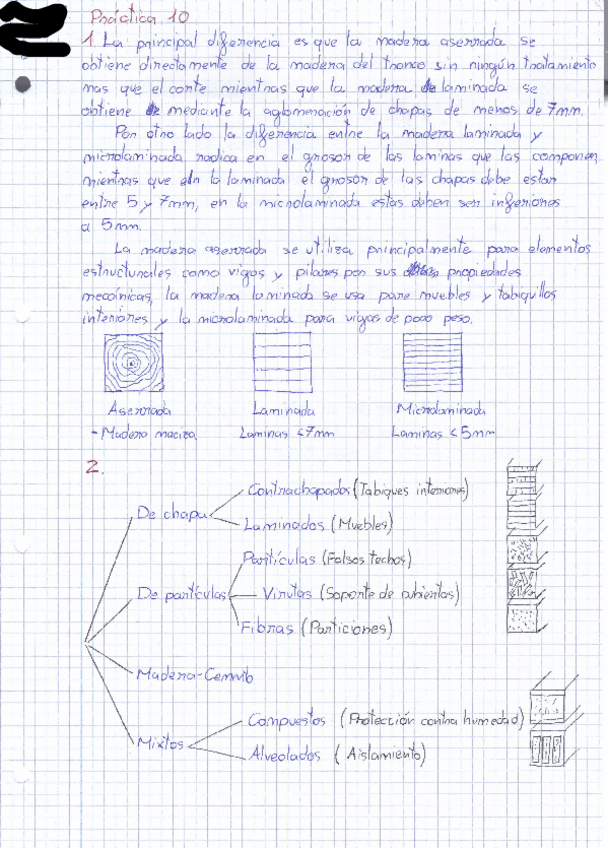 Práctica 10
1. La principal diferencia es que la madera aserrada se
obtiene directamente de la madera del tronco sin ningún tratamiento
mas que el corte mientras que la madera laminada se
obtiene mediante la aglomeración de chapas de menos de 7mm.
Por otro lado la diferencia entre la madera laminada y
microlaminada radica en el grosor de las laminas que las componen,
mientras que en la laminada el grosor de las chapas debe estar
entre 5 y 7mm, en la microlaminada estas deben ser inferiores
a 5mm.
La madera aserrada se utiliza principalmente para elementos
estructurales como vigas y pilares por sus propiedades
mecánicas, la madera laminada se usa para muebles y tabiquillos
interiores y la microlaminada para vigas de poco peso.
Aserrada Laminada Microlaminada
- Madera maciza Laminas <7mm Laminas <5mm
2.
Contrachapados (Tabiques interiores)
De chapa
Laminados (Muebles)
Partículas (Falsos techos)
De partículas Virutas (Soporte de cubiertas)
Fibras (Particiones)
Madera-Cemento
Compuestos (Protección contra humedad)
Mixtos
Alveolados (Aislamiento)